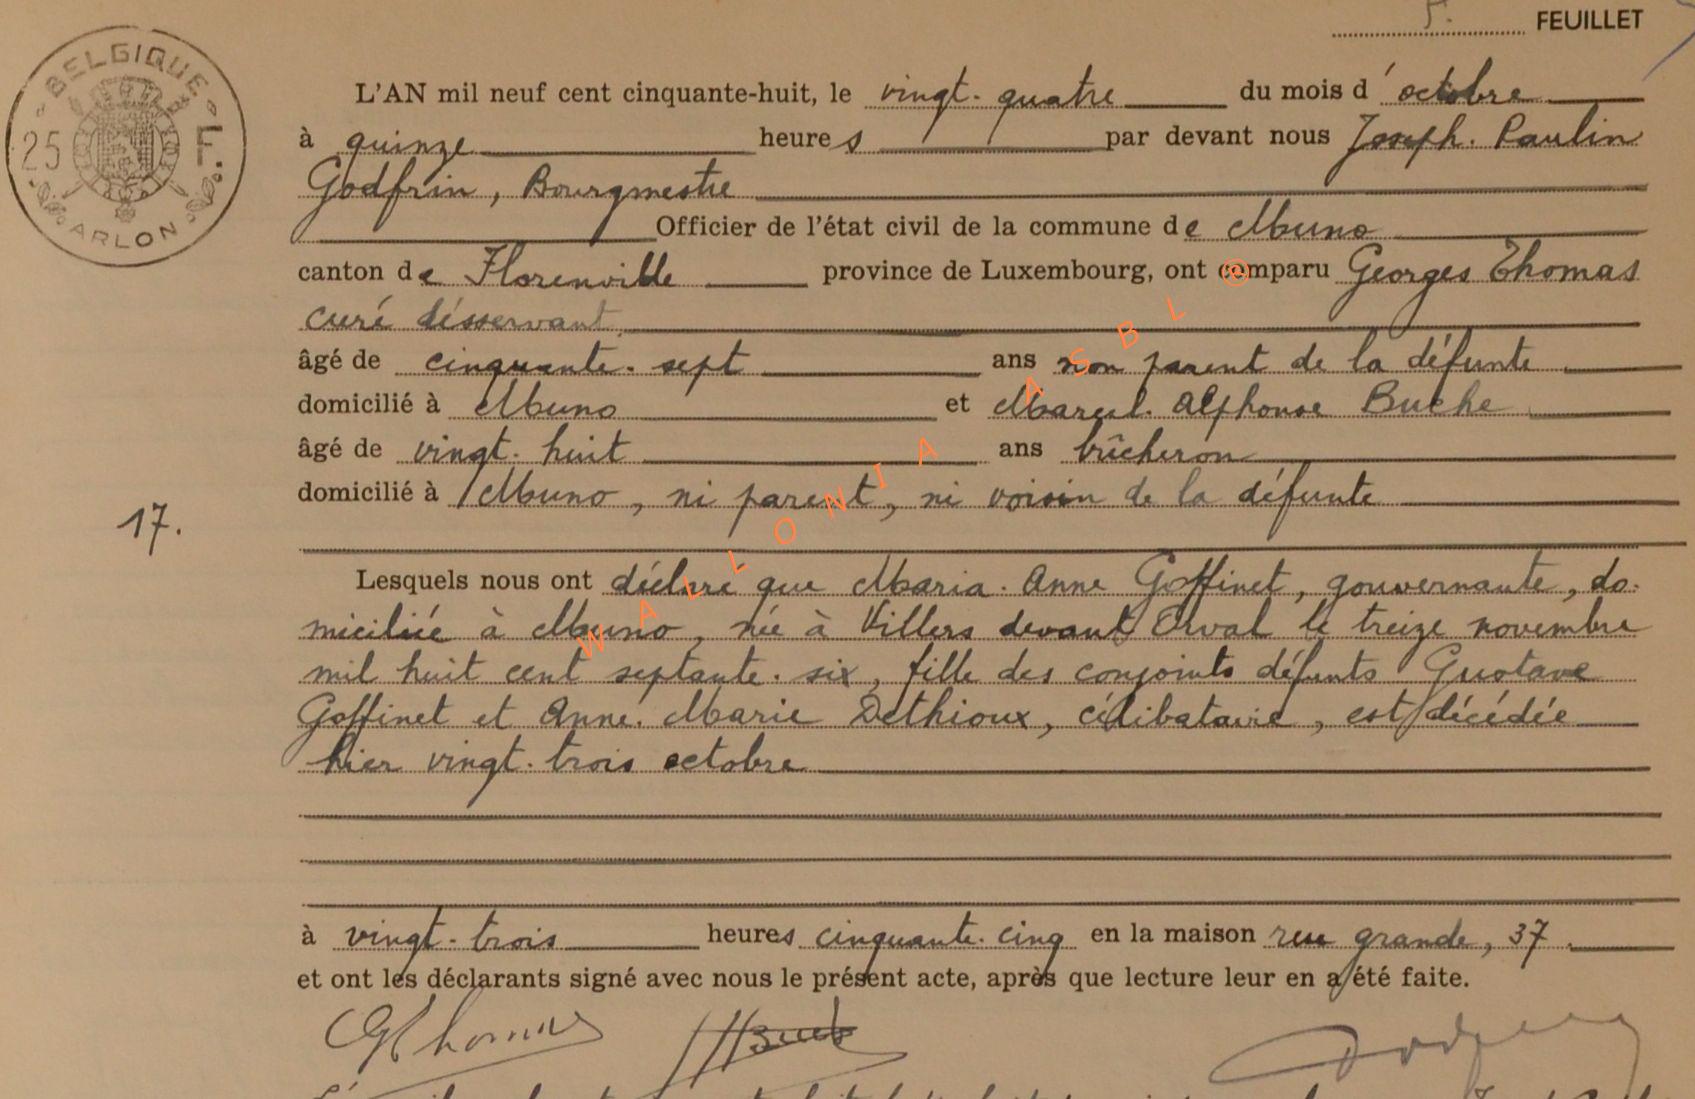 5. FEUILLET
BELGIQUE
25 F.
ARLON
L'AN mil neuf cent cinquante-huit, le vingt-quatre du mois d'octobre
à quinze heures par devant nous Joseph-Paulin
Godfrin, Bourgmestre
Officier de l'état civil de la commune de Muno
canton de Florenville province de Luxembourg, ont comparu Georges Thomas
curé désservant
âgé de cinquante-sept ans non parent de la défunte
domicilié à Muno et Marcel-Alphonse Buche
âgé de vingt-huit ans bûcheron
domicilié à Muno, ni parent, ni voisin de la défunte
17.
Lesquels nous ont déclaré que Maria-Anne Goffinet, gouvernante, do-
miciliée à Muno, née à Villers devant Orval le treize novembre
mil huit cent septante-six, fille des conjoints défunts Gustave
Goffinet et Anne-Marie Dethioux, célibataire, est décédée
hier vingt-trois octobre
à vingt-trois heures cinquante-cinq en la maison rue grande, 37
et ont les déclarants signé avec nous le présent acte, après que lecture leur en a été faite.
GThomas
WALLONIA ASBL ®